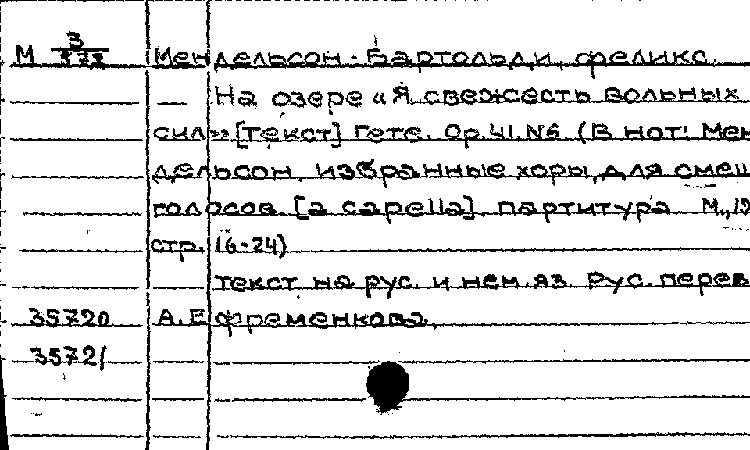 М 3/373 Мендельсон-Бартольди, Феликс.
— На озере «Я свежесть вольных
сил» [текст] Гете. Op.41.N6 (В нот: Мен
дельсон. избранные хоры для смеш
голосов. [a capella]. партитура М.,19
стр. 16-24)
текст на рус. и нем.яз. Рус. перев
35720 А. Ефременкова.
35721